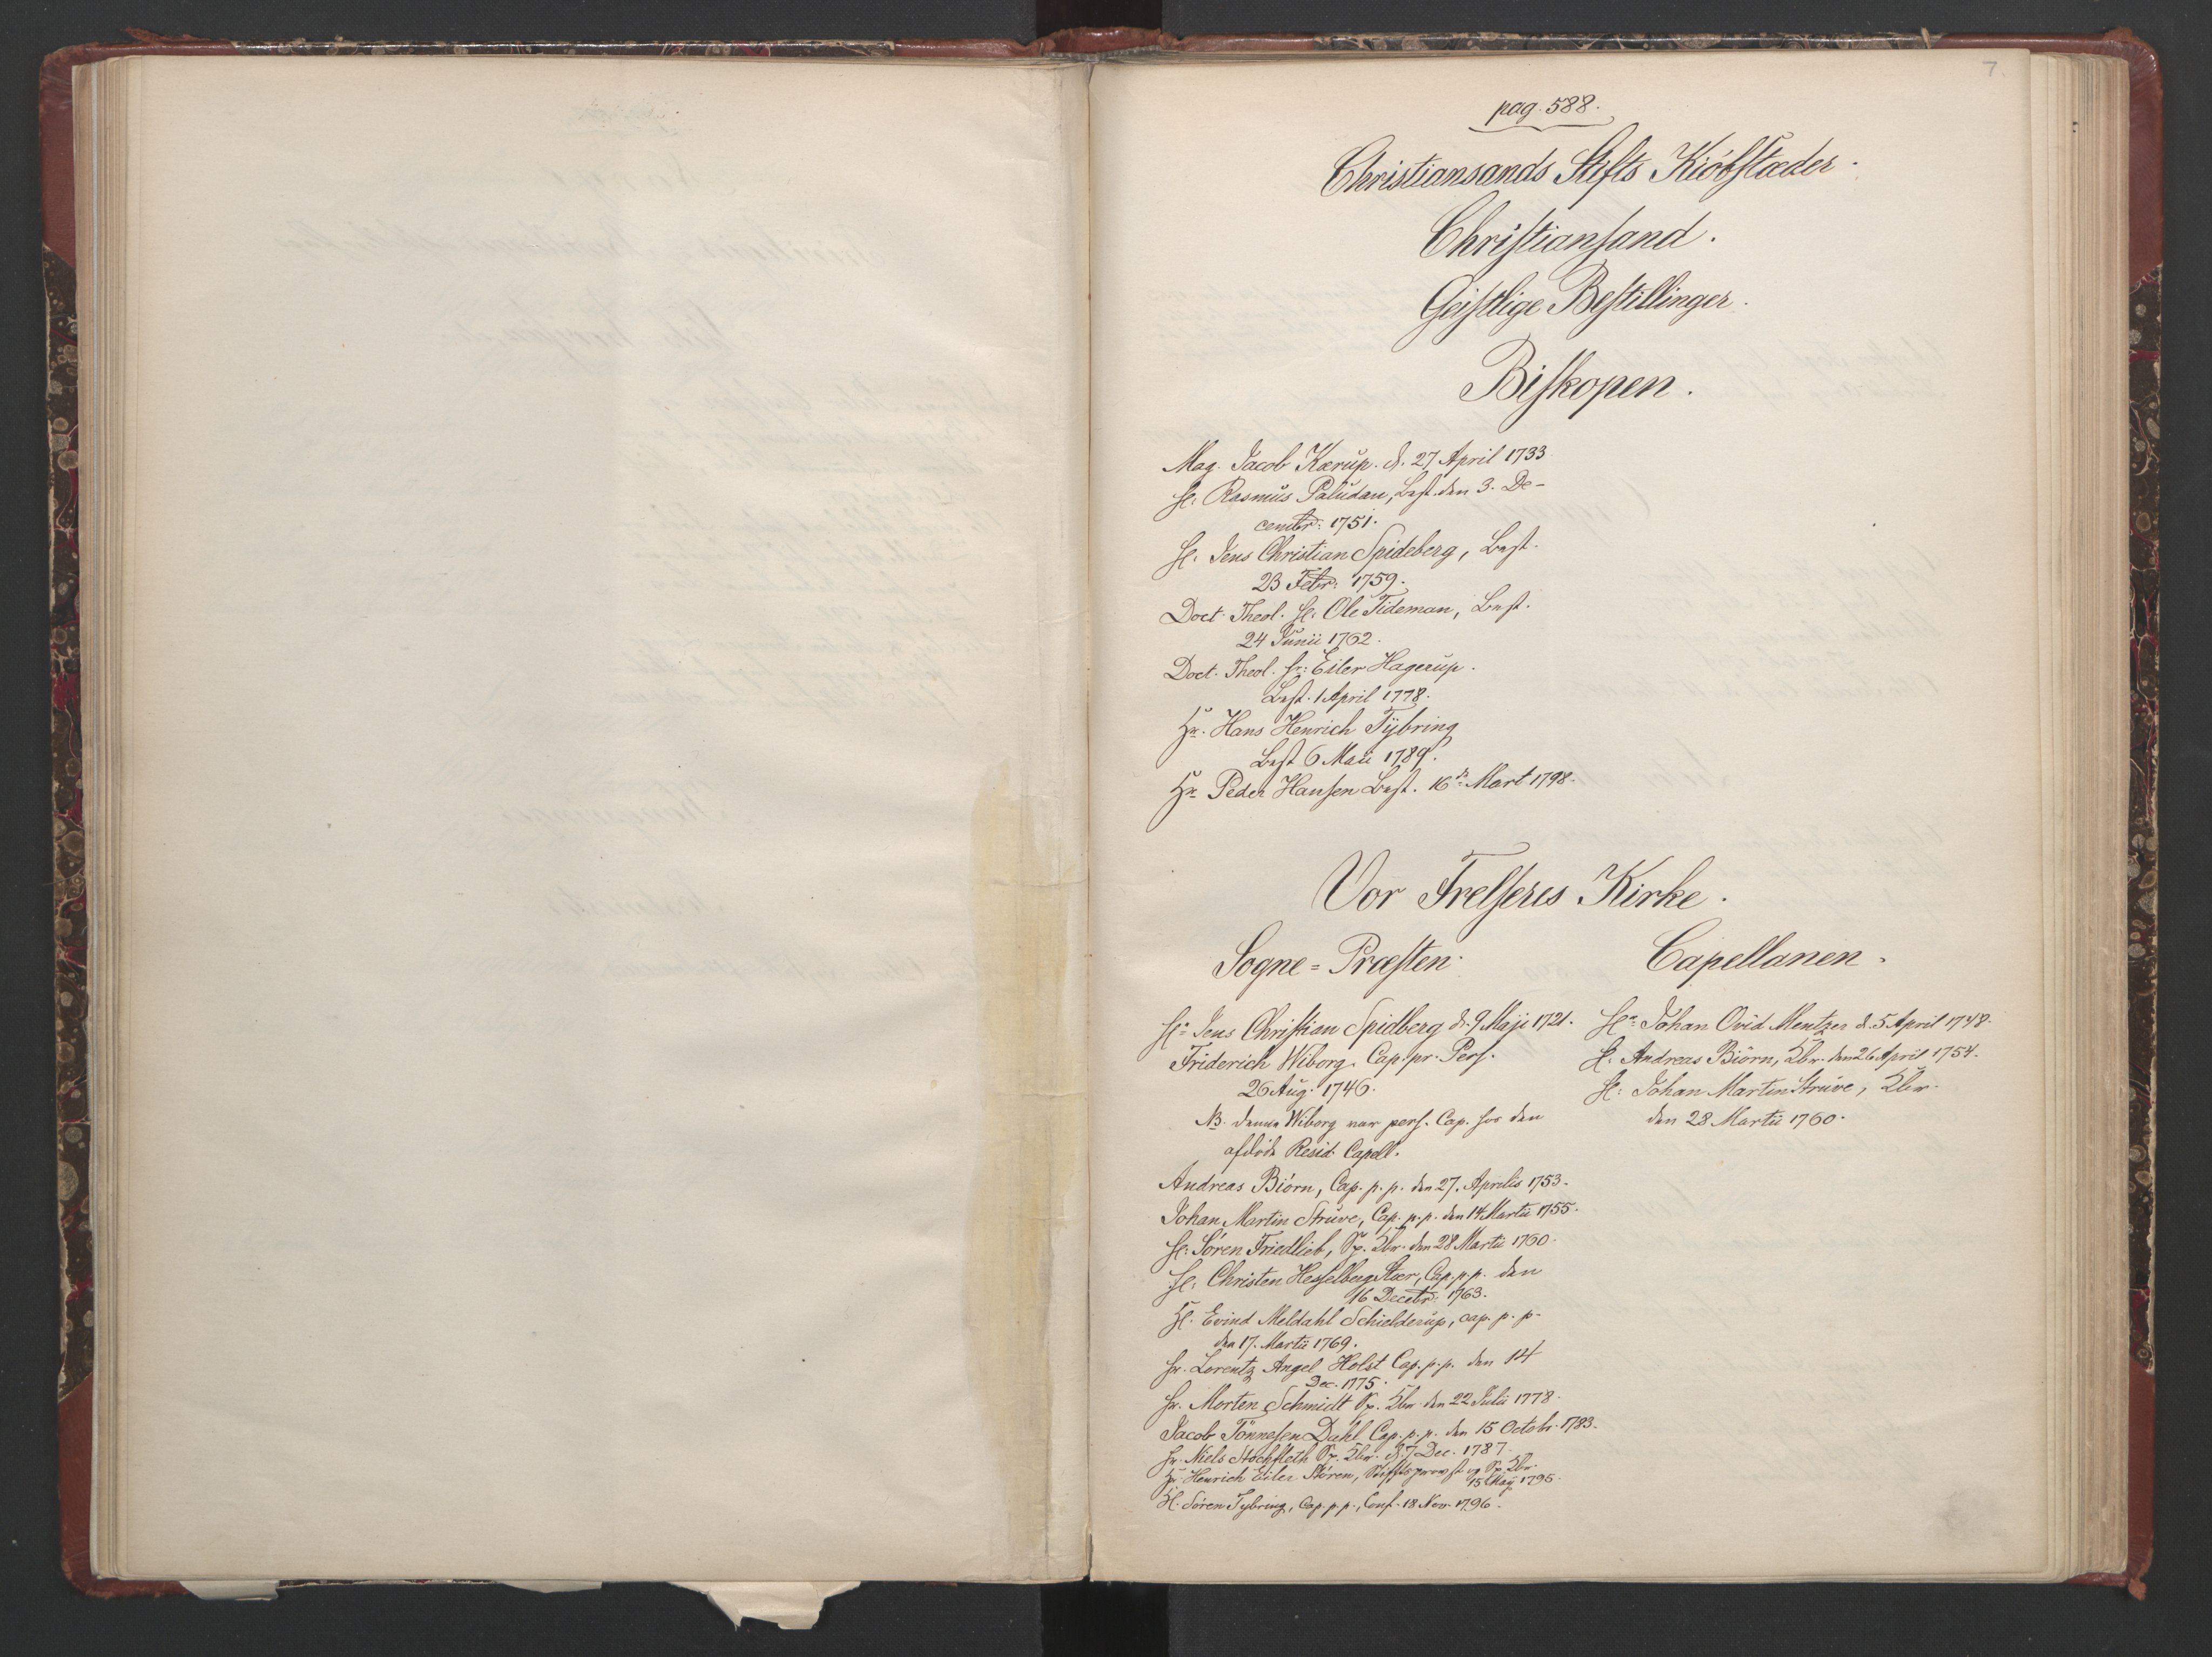 7.
pag. 588.
Christiansands Stifts Kiöbstæder.
Christiansand.
Geistlige Bestillinger.
Biskopen.
Mag. Jacob Kærup. d. 27 April 1733
H: Rasmus Paludan, Best. den 3. De-
cembr: 1751.
H: Jens Christian Spideberg, Best.
23 Febr: 1759.
Doct. Theol. H: Ole Tideman, Best.
24 Junii 1762.
Doct. Theol. Hr: Eiler Hagerup.
Best. 1 April 1778.
Hr. Hans Henrich Tÿbring
Best 6 Maii 1789.
Hr. Peder Hansen Best. 16de Mart 1798.
Vor Frelseres Kirke.
Sogne-Præsten.
Hr Jens Christian Spidberg d. 9 Maji 1721.
Friderich Wiborg. Cap. pr. Pers.
26 Aug. 1746.
NB. denne Wiborg var pers. Cap. hos den
afdöde Resid. Capell.
Andreas Biörn, Cap. p. p. den 27. Aprilis 1753.
Johan Martin Struve, Cap. p. p. den 14 Martii 1755.
H: Sören Friedlieb, Sp. Kbr. den 28 Martii 1760.
H: Christen Hesselberg Stær, Cap. p. p. den
16 Decebr: 1763.
H: Evind Meldahl Schielderup, cap. p. p.
den 17. Martii 1769.
Hr. Lorentz Angel Holst Cap. p. p. den 14
Dec. 1775.
Hr. Morten Schmidt Sp. Kbr. den 22 Julii 1778.
Jacob Tönnesen Dahl Cap. p. p. den 15 Octobr. 1783.
Hr. Niels Stochfleth Sp. Kbr. d. 7 Dec. 1787.
Hr. Henrich Eiler Stören, Stiftsprovst og Sp. Kbr.
15 Maÿ 1795.
H. Sören Tybring, Cap. p. p., Conf. 18 Nov. 1796.
Capellanen.
Hr Johan Ovid Mentzer d. 5 April 1748.
H: Andreas Biörn, Kbr. den 26 April 1754.
H: Johan Martin Struve, Kbr.
den 28 Martii 1760.